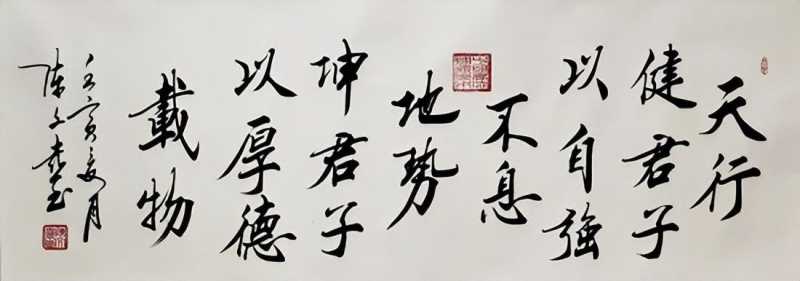 天行
健君子
以自強
不息
地勢
坤君子
以厚德
載物
壬寅夏月